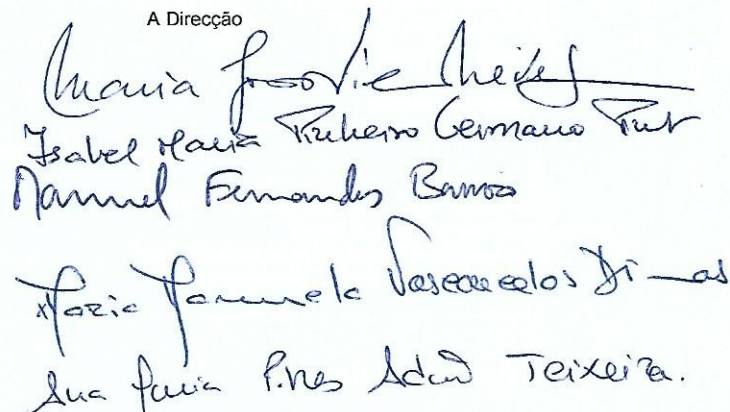 A Direcção
Maria
Isabel Maria Pinheiro Germano
Manuel Fernandes Barros
Maria Manuela Vasconcelos Dimas
Ana Maria Pires Adão Teixeira.